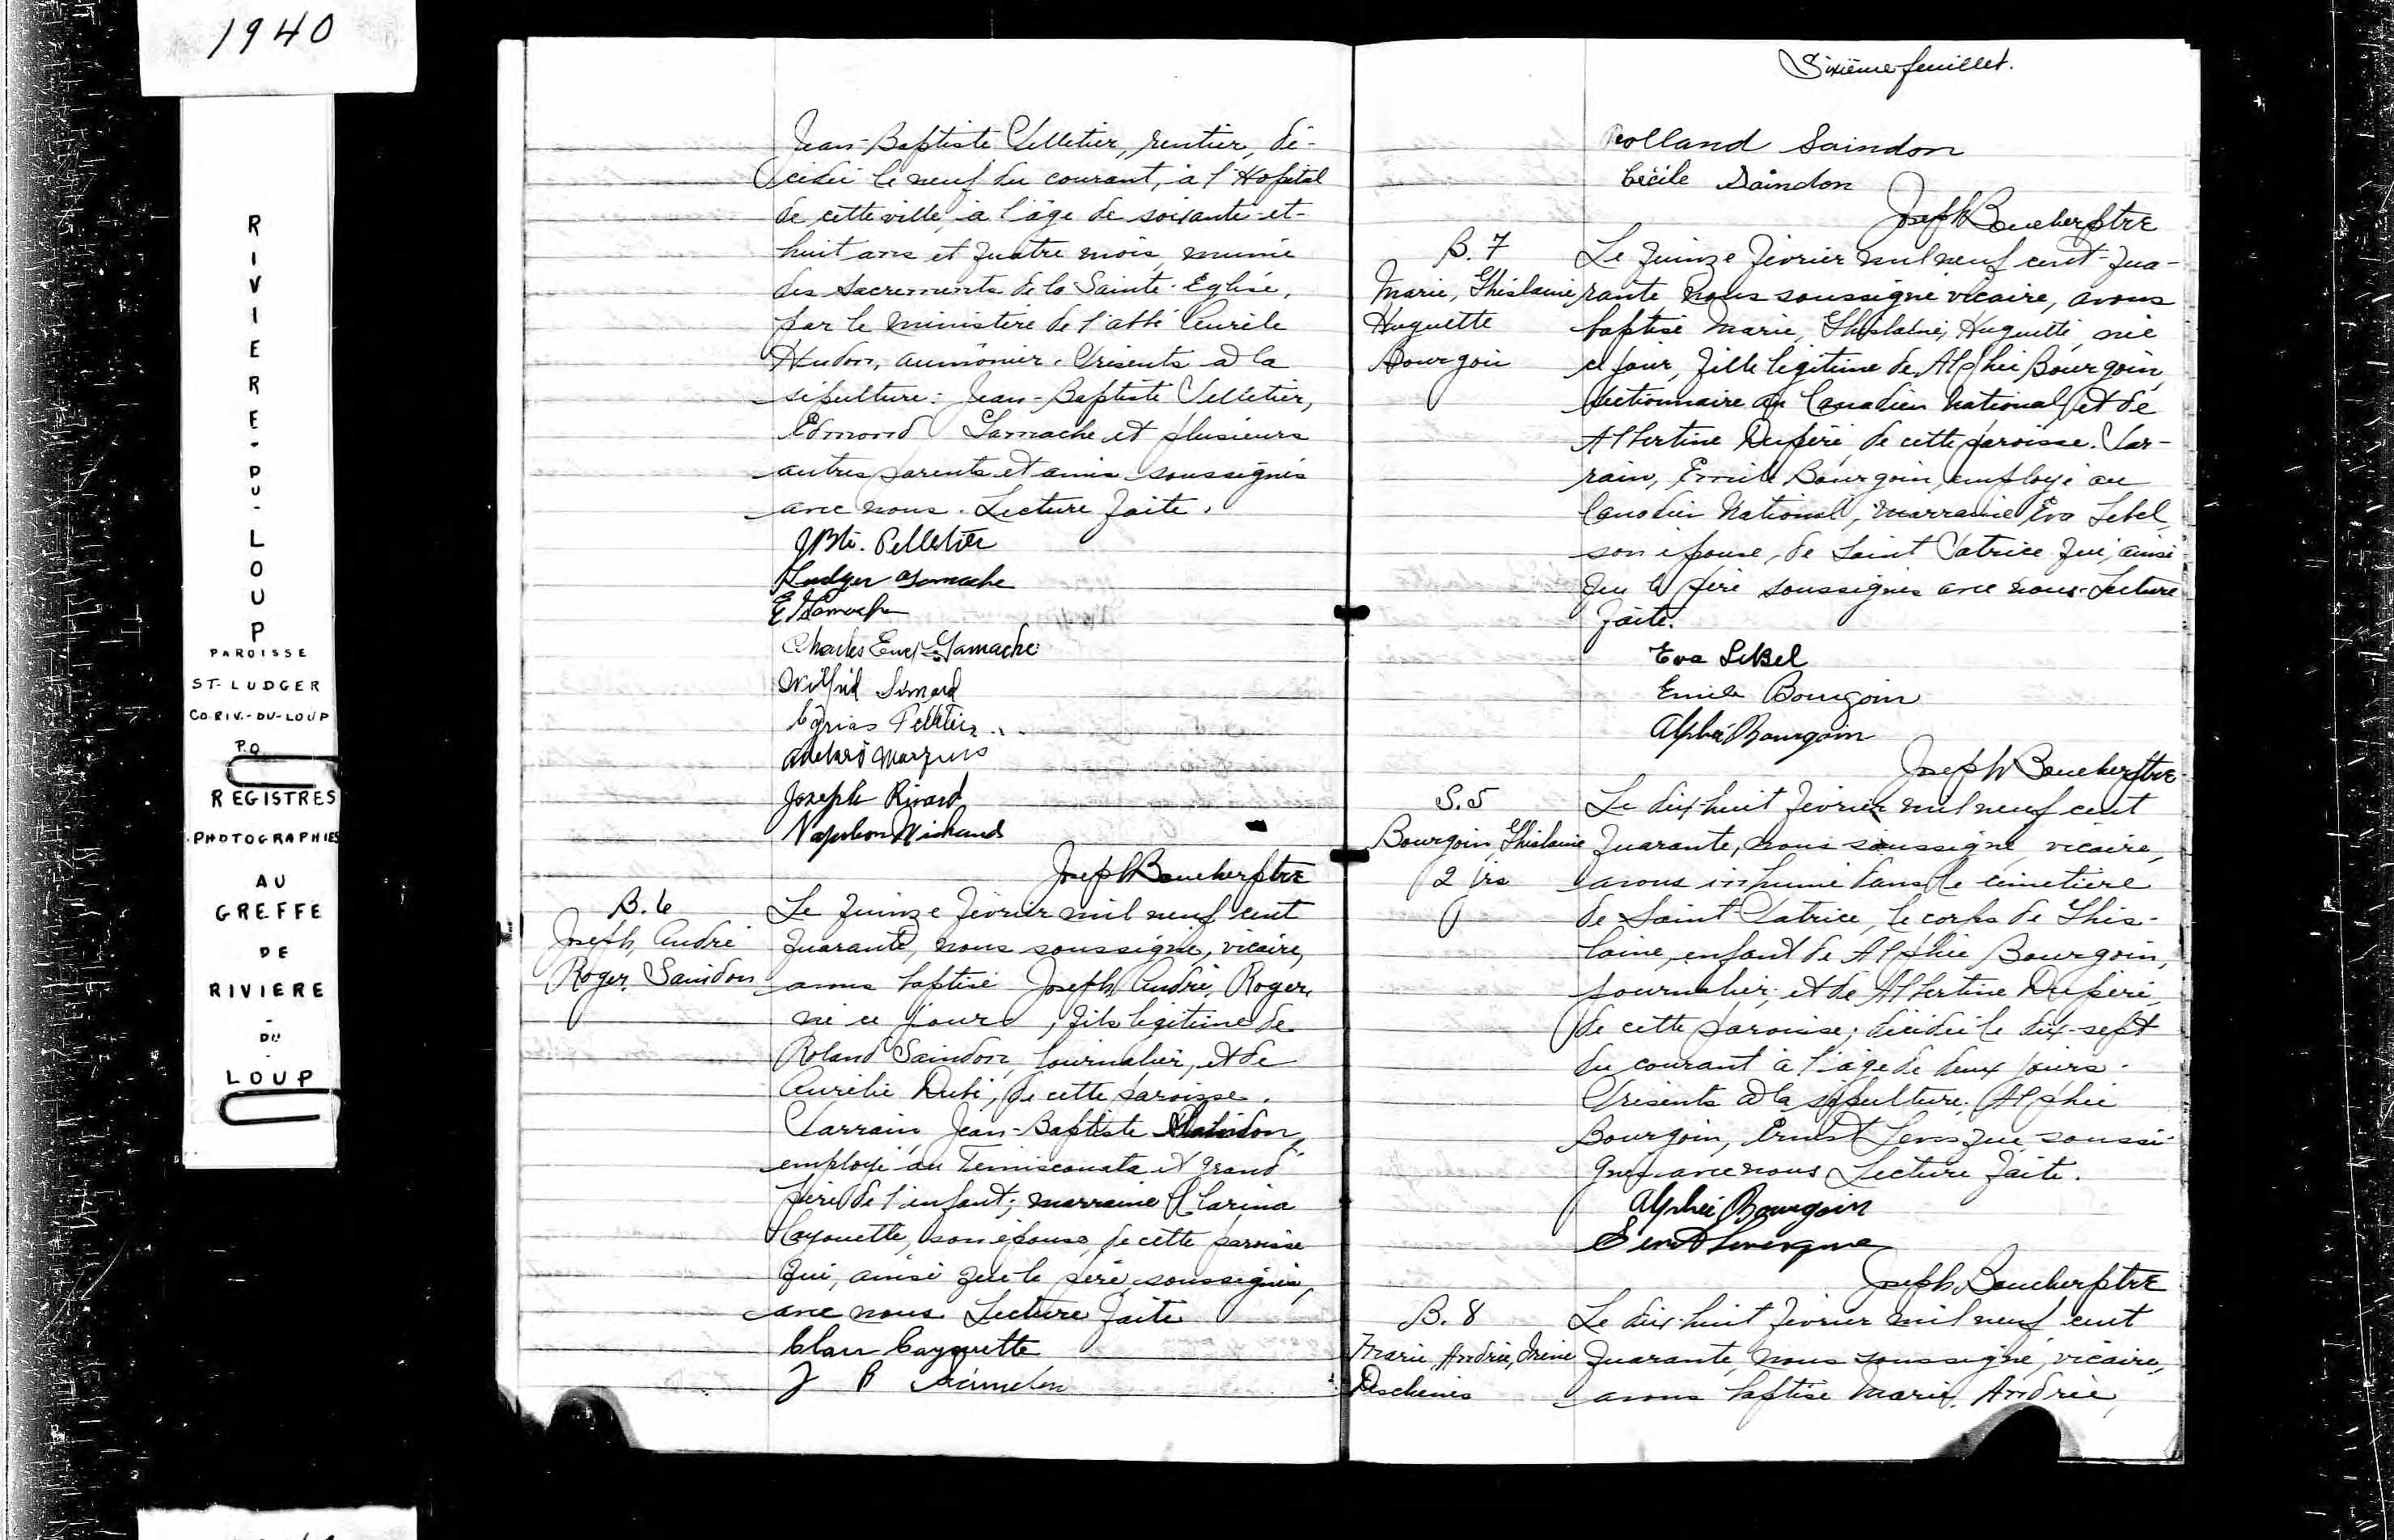 1940
RIVIERE-DU-LOUP
PAROISSE
ST-LUDGER
CO. RIV.-DU-LOUP
P.Q.
REGISTRES
PHOTOGRAPHIES
AU
GREFFE
DE
RIVIERE
-
DU
-
LOUP
Jean-Baptiste Pelletier, rentier, dé-
cédée le neuf du courant, à l'Hopital
de cette ville, à l'âge de soixante-et-
huit ans et quatre mois, munie
des sacrements de la Sainte-Eglise,
par le ministère de l'abbé Aurèle
Hudon, aumônier. Présents à la
sépulture: Jean-Baptiste Pelletier,
Edmond Gamache et plusieurs
autres parents et amis soussignés
avec nous. Lecture faite.
J Bte. Pelletier
Ludger Gamache
E Gamache
Charles Eug. Gamache
Wilfrid Simard
Pelletier
Adelard Marquis
Joseph Rivard
Napoleon Michaud
Joseph Boucher ptre
B. 6
Joseph, André
Roger Saindon
Le quinze février mil neuf cent
quarante, nous soussigné, vicaire,
avons baptisé Joseph, André, Roger,
né ce jour, fils légitime de
Roland Saindon, journalier, et de
Aurélie Dubé, de cette paroisse.
Parrain, Jean-Baptiste Saindon,
employé au Témiscouata et grand
père de l'enfant; marraine Clarina
Cayouette, son épouse, de cette paroisse
qui, ainsi que le père, soussignés,
avec nous. Lecture faite
Clara Cayouette
J B Saindon
Sixième feuillet.
Rolland Saindon
Cécile Saindon
Joseph Boucher ptre
B. 7
Marie, Ghislaine,
Huguette
Bourgoin
Le quinze février mil neuf cent-qua-
rante nous soussigné vicaire, avons
baptisé Marie, Ghislaine, Huguette, née
ce jour, fille légitime de Alphée Bourgoin,
sectionnaire au Canadien National, et de
Albertine Dupéré, de cette paroisse. Par-
rain, Emile Bourgoin, employé au
Canadien National, marraine Eva Lebel,
son épouse, de Saint Patrice qui, ainsi
que le père soussignés avec nous. Lecture
faite.
Eva LeBel
Emile Bourgoin
Alphée Bourgoin
Joseph Boucher ptre
S. 5
Bourgoin, Ghislaine
2 jrs
Le dix-huit février mil neuf cent
quarante, nous soussigné, vicaire,
avons inhumé dans le cimetière
de Saint Patrice, le corps de Ghis-
laine, enfant de Alphée Bourgoin,
journalier, et de Albertine Dupéré,
de cette paroisse; décédée le dix-sept
du courant à l'âge de deux jours.
Présents à la sépulture: Alphée
Bourgoin, Ernest Levesque soussi-
gnés avec nous Lecture faite.
Alphée Bourgoin
Ernest Levesque
Joseph Boucher ptre
B. 8
Marie, Andrée, Irène
Deschênes
Le dix-huit février mil neuf cent
quarante, nous soussigné, vicaire,
avons baptisé Marie, Andrée,